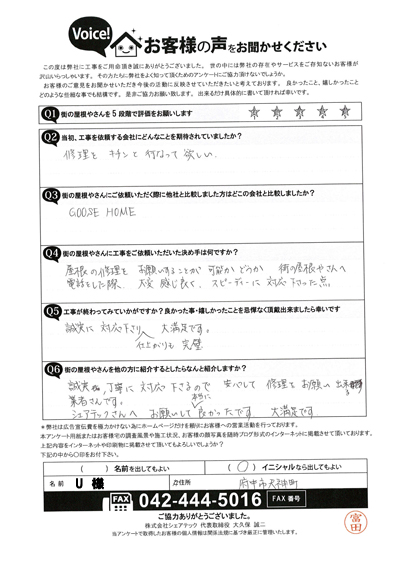 Voice! お客様の声をお聞かせください
この度は弊社に工事をご用命頂き誠にありがとうございました。世の中には弊社の存在やサービスをご存知ないお客様が
沢山いらっしゃいます。その方たちに弊社をよく知って頂くためのアンケートにご協力頂けないでしょうか。
お客様のご意見をお聞かせいただき今後の活動に反映させていただきたいと考えております。良かったこと、嬉しかったこと
どのような些細な事でも結構です。是非ご協力お願い致します。出来るだけ具体的に書いて頂ければ幸いです。
Q1 街の屋根やさんを5段階で評価をお願いします ☆ ☆ ☆ ☆ ☆
Q2 当初、工事を依頼する会社にどんなことを期待されていましたか?
修理を キチンと 行なって 欲しい.
Q3 街の屋根やさんにご依頼いただく際に他社と比較しました方はどこの会社と比較しましたか?
GOOSE HOME
Q4 街の屋根やさんに工事をご依頼いただいた決め手は何ですか?
屋根の修理を お願いすることが 可能かどうか 街の屋根やさんへ
電話をした際、大変 感じ良く、スピーディーに 対応 下さった点
Q5 工事が終わってみていかがですか?良かった事・嬉しかったことを忌憚なく頂戴出来ましたら幸いです
誠実に 対応下さり 大満足です。
仕上がりも 完璧
Q6 街の屋根やさんを他の方に紹介するとしたらなんと紹介しますか?
誠実 丁寧に 対応 下さるので 安心して 修理を お願い 出来る
業者さんです。
シェアテックさんへ お願いして 本当に 良かったです 大満足です
*弊社は広告宣伝費を極力かけない為にホームページだけを頼りにお客様への営業活動を行っております。
本アンケート用紙またはお客様宅の調査風景や施工状況、お客様の顔写真を随時ブログ形式のインターネットに掲載させて頂いております。
上記内容をインターネットや印刷物に掲載させて頂いてもよろしいでしょうか?
下記の中から〇印をお付け下さい。
( )名前を出してもよい (○)イニシャルなら出してもよい
名前 U 様 ご住所 府中市天神町
FAX 042-444-5016 FAX 番号
ご協力ありがとうございました。
株式会社シェアテック 代表取締役 大久保 誠二
当アンケートで取得したお客様の個人情報は関係法令に基づき厳正に管理いたします。
富田